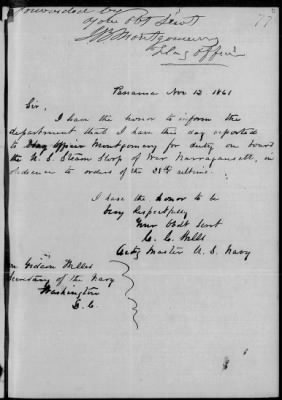 Forwarded by
your Obt Servt
Jno B Montgomery
Flag Officer
77
Panama Nov 12. 1861
Sir,
I have the honor to inform the
department that I have this day reported
to Flag Officer Montgomery for duty on board
the U. S. Steam Sloop of War Narragansett, in
obedience to orders of the 21st ultimo.
I have the honor to be
Very Respectfully
Your Obdt Servt
C. C. Wells
Actg Master U. S. Navy
Hon Gideon Welles
Secretary of the Navy
Washington
D. C